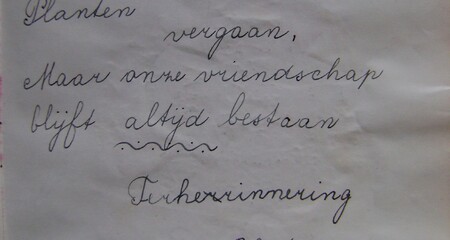 Planten
vergaan,
Maar onze vriendschap
blijft altijd bestaan
Terherrinnering